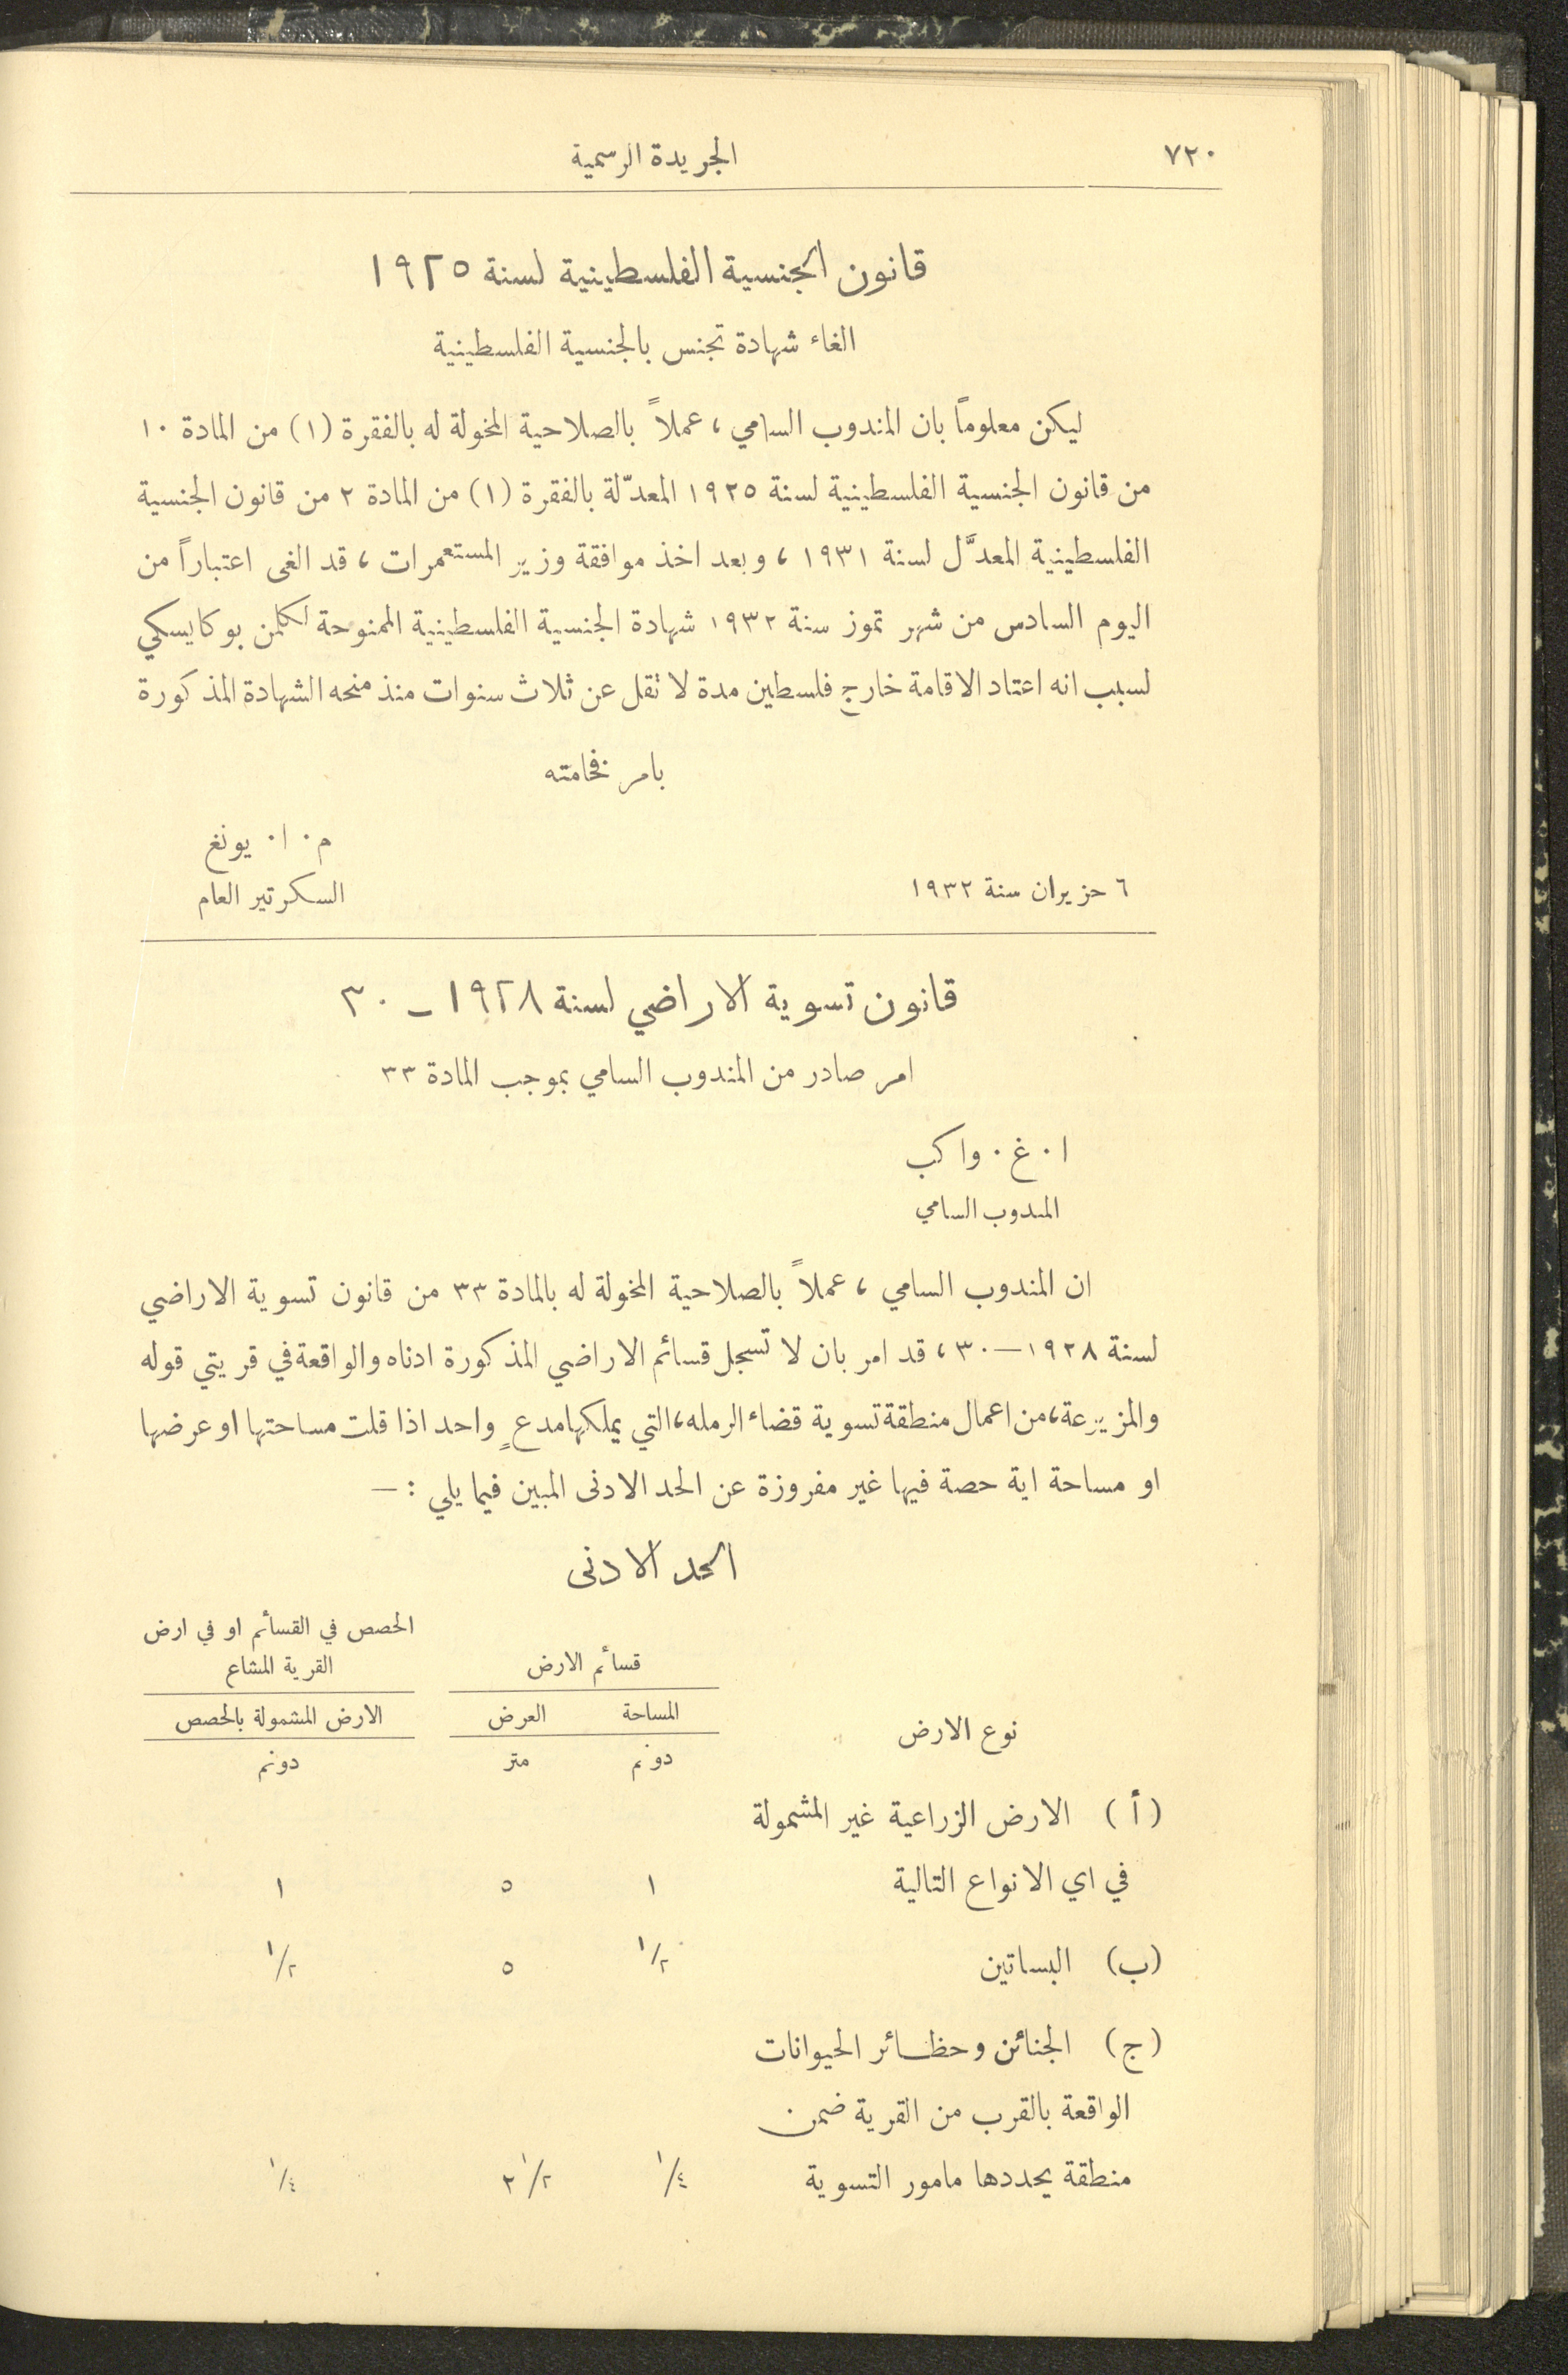 ٧٢٠
الجريدة الرسمية
قانون الجنسية الفلسطينية لسنة ١٩٢٥
الغاء شهادة تجنس بالجنسية الفلسطينية
ليكن معلوماً بان المندوب السامي، عملاً بالصلاحية المخولة له بالفقرة (١) من المادة ١٠
من قانون الجنسية الفلسطينية لسنة ١٩٢٥ المعدّلة بالفقرة (١) من المادة ٢ من قانون الجنسية
الفلسطينية المعدَّل لسنة ١٩٣١، وبعد اخذ موافقة وزير المستعمرات، قد الغى اعتباراً من
اليوم السادس من شهر تموز سنة ١٩٣٢ شهادة الجنسية الفلسطينية الممنوحة لكلمن بوكايسكي
لسبب انه اعتاد الاقامة خارج فلسطين مدة لا تقل عن ثلاث سنوات منذ منحه الشهادة المذكورة
بامر فخامته
م. ا. يونغ
٦ حزيران سنة ١٩٣٢
السكرتير العام
قانون تسوية الاراضي لسنة ١٩٢٨ - ٣٠
امر صادر من المندوب السامي بموجب المادة ٣٣
ا. غ. واكب
المندوب السامي
ان المندوب السامي، عملاً بالصلاحية المخولة له بالمادة ٣٣ من قانون تسوية الاراضي
لسنة ١٩٢٨—٣٠، قد امر بان لا تسجل قسائم الاراضي المذكورة ادناه والواقعة في قريتي قوله
والمزيرعة، من اعمال منطقة تسوية قضاء الرمله، التي يملكها مدعٍ واحد اذا قلت مساحتها او عرضها
او مساحة اية حصة فيها غير مفروزة عن الحد الادنى المبين فيما يلي : —
الحد الادنى
الحصص في القسائم او في ارض
قسائم الارض القرية المشاع
نوع الارض المساحة العرض الارض المشمولة بالحصص
دونم متر دونم
(أ) الارض الزراعية غير المشمولة
في اي الانواع التالية ١ ٥ ١
(ب) البساتين ١/٢ ٥ ١/٢
(ج) الجنائن وحظائر الحيوانات
الواقعة بالقرب من القرية ضمن
منطقة يحددها مامور التسوية ١/٤ ٢ ١/٢ ١/٤